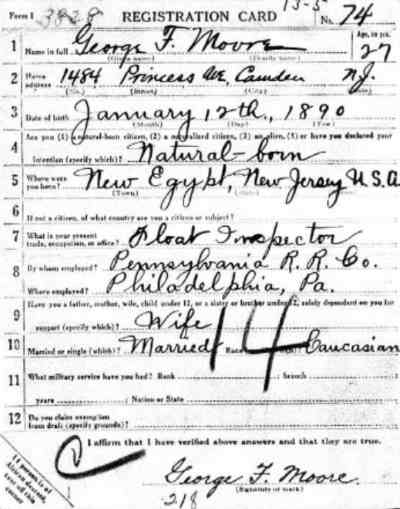 Form 1 3828 REGISTRATION CARD No. 74
1 Name in full George F. Moore Age, in yrs. 27
(Given name) (Family name)
2 Home address 1484 Princess Ave, Camden N.J.
(No.) (Street) (City) (State)
3 Date of birth January 12th, 1890
(Month) (Day) (Year)
Are you (1) a natural-born citizen, (2) a naturalized citizen, (3) an alien, (4) or have you declared your
4 intention (specify which)? Natural-born
5 Where were you born? New Egypt, New Jersey U.S.A
(Town) (State)
6 If not a citizen, of what country are you a citizen or subject?
7 What is your present trade, occupation, or office? Float Inspector
8 By whom employed? Pennsylvania R.R. Co.
Where employed? Philadelphia, Pa.
Have you a father, mother, wife, child under 12, or a sister or brother under 12, solely dependent on you for
9 support (specify which)? Wife
10 Married or single (which)? Married Race Caucasian
14
11 What military service have you had? Rank ; branch
years ; Nation or State
12 Do you claim exemption from draft (specify grounds)?
I affirm that I have verified above answers and that they are true.
George F. Moore
(Signature or mark)
218
If person is of
African descent,
tear off this
corner